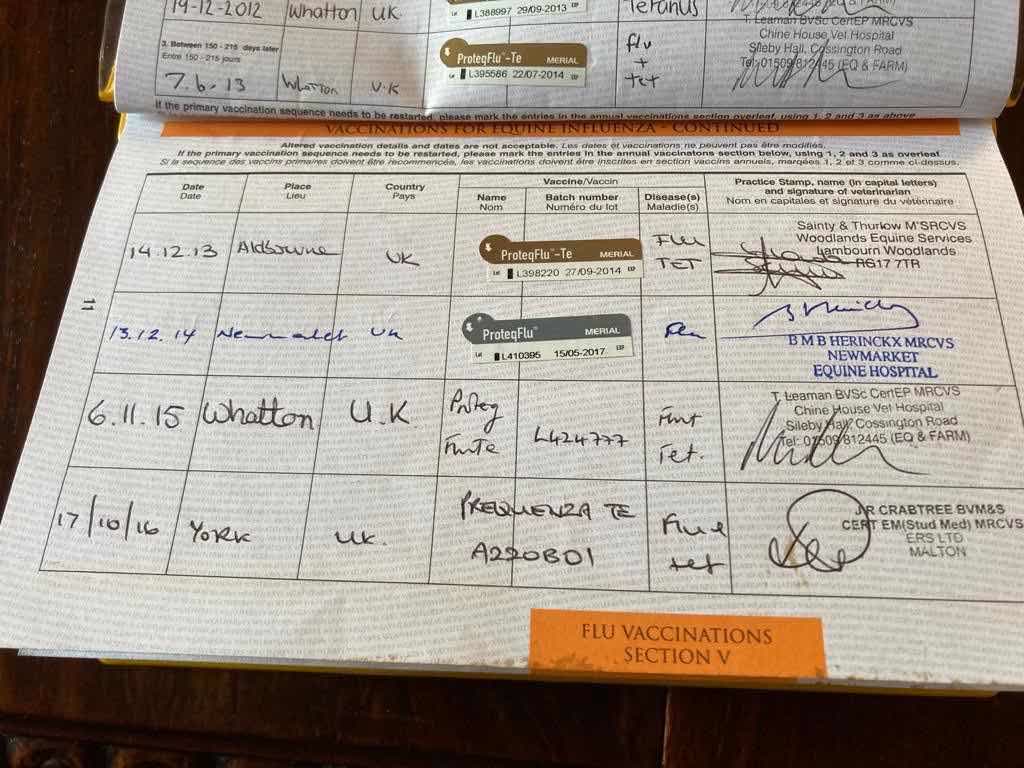 19-12-2012 Whatton U.K. L388997 29/09/2013 EXP Tetanus
T. Leaman BVSc CertEP MRCVS
Chine House Vet Hospital
Sileby Hall, Cossington Road
Tel: 01509 812445 (EQ & FARM)
3. Between 150 - 215 days later
Entre 150 - 215 jours
7.6.13 Whatton U.K
ProteqFlu™-Te MERIAL
Lot L395586 22/07/2014 EXP
Flu
+
Tet
If the primary vaccination sequence needs to be restarted, please mark the entries in the annual vaccinations section overleaf, using 1, 2 and 3 as above
VACCINATIONS FOR EQUINE INFLUENZA - CONTINUED
Altered vaccination details and dates are not acceptable. Les dates et vaccinations ne peuvent pas être modifiés.
If the primary vaccination sequence needs to be restarted, please mark the entries in the annual vaccinations section below, using 1, 2 and 3 as overleaf.
Si la sequence des vaccins primaires doivent être recommencés, les vaccinations doivent être inscrites en section vaccins annuels, marqées 1, 2 et 3 comme ci-dessus.
Date
Date
Place
Lieu
Country
Pays
Vaccine/Vaccin
Name
Nom
Batch number
Numéro du lot
Disease(s)
Maladie(s)
Practice Stamp, name (in capital letters)
and signature of veterinarian
Nom en capitales et signature du vétérinaire
14.12.13 Aldbourne UK
ProteqFlu™-Te MERIAL
Lot L398220 27/09/2014 EXP
FLU
TET
Sainty & Thurlow M'SRCVS
Woodlands Equine Services
Lambourn Woodlands
RG17 7TR
11
13.12.14 Newmarket UK
ProteqFlu™ MERIAL
Lot L410395 15/05/2017 EXP
Flu
B M B HERINCKX MRCVS
NEWMARKET
EQUINE HOSPITAL
6.11.15 Whatton U.K
Proteq
FluTe
L424777
Flu+
Tet.
T. Leaman BVSc CertEP MRCVS
Chine House Vet Hospital
Sileby Hall, Cossington Road
Tel: 01509 812445 (EQ & FARM)
17/10/16 YORK UK.
PREQUENZA TE
A220B01
Flu &
tet
J R CRABTREE BVM&S
CERT EM(Stud Med) MRCVS
ERS LTD
MALTON
FLU VACCINATIONS
SECTION V